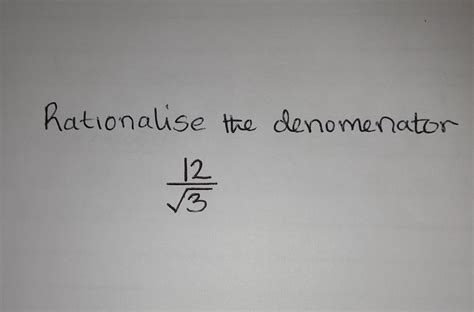 Rationalise the denomenator
12
√3